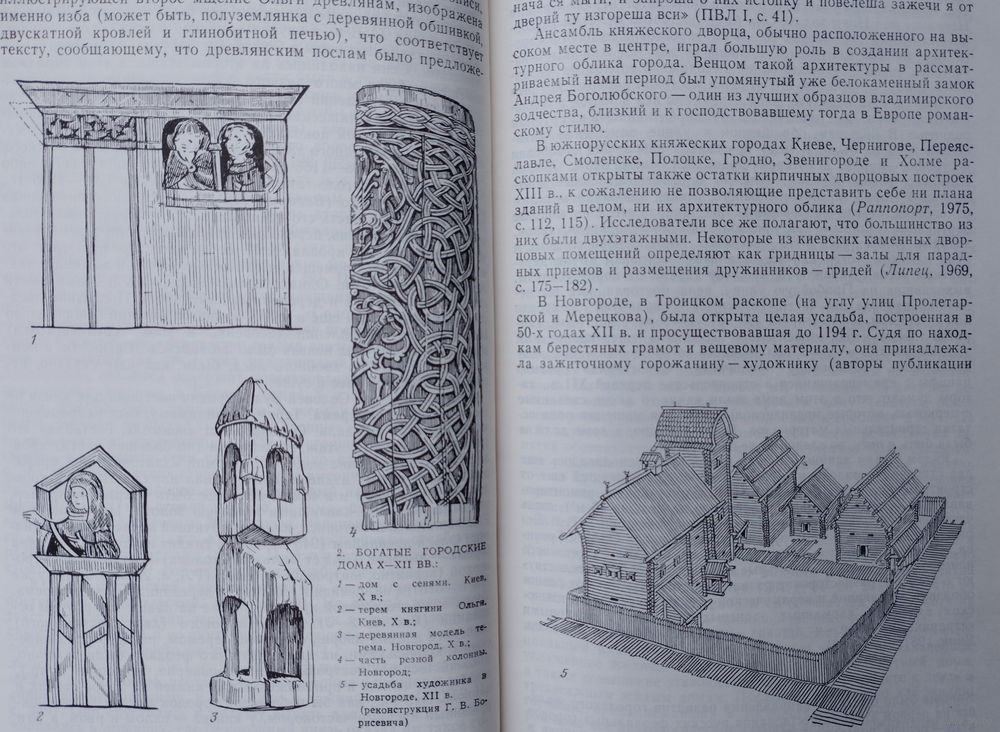 иллюстрирующей второе мщение Ольги древлянам, изображена
именно изба (может быть, полуземлянка с деревянной обшивкой,
двускатной кровлей и глинобитной печью), что соответствует
тексту, сообщающему, что древлянским послам было предложе-
1
2
3
4
2. БОГАТЫЕ ГОРОДСКИЕ
ДОМА X—XII ВВ.:
1 — дом с сенями. Киев,
X в.;
2 — терем княгини Ольги.
Киев, X в.;
3 — деревянная модель те-
рема. Новгород, X в.;
4 — часть резной колонны.
Новгород;
5 — усадьба художника в
Новгороде, XII в.
(реконструкция Г. В. Бо-
рисевича)
нача ся мыти, и запроша о них истопку и повелеша зажечи я от
дверий ту изгореша вси» (ПВЛ I, с. 41).
Ансамбль княжеского дворца, обычно расположенного на вы-
соком месте в центре, играл большую роль в создании архитек-
турного облика города. Венцом такой архитектуры в рассмат-
риваемый нами период был упомянутый уже белокаменный замок
Андрея Боголюбского — один из лучших образцов владимирского
зодчества, близкий и к господствовавшему тогда в Европе роман-
скому стилю.
В южнорусских княжеских городах Киеве, Чернигове, Переяс-
лавле, Смоленске, Полоцке, Гродно, Звенигороде и Холме рас-
копками открыты также остатки кирпичных дворцовых построек
XIII в., к сожалению не позволяющие представить себе ни плана
зданий в целом, ни их архитектурного облика (Раппопорт, 1975,
с. 112, 115). Исследователи все же полагают, что большинство из
них были двухэтажными. Некоторые из киевских каменных двор-
цовых помещений определяют как гридницы — залы для парад-
ных приемов и размещения дружинников — гридей (Липец, 1969,
с. 175—182).
В Новгороде, в Троицком раскопе (на углу улиц Пролетар-
ской и Мерецкова), была открыта целая усадьба, построенная в
50-х годах XII в. и просуществовавшая до 1194 г. Судя по наход-
кам берестяных грамот и вещевому материалу, она принадлежа-
ла зажиточному горожанину — художнику (авторы публикации
5